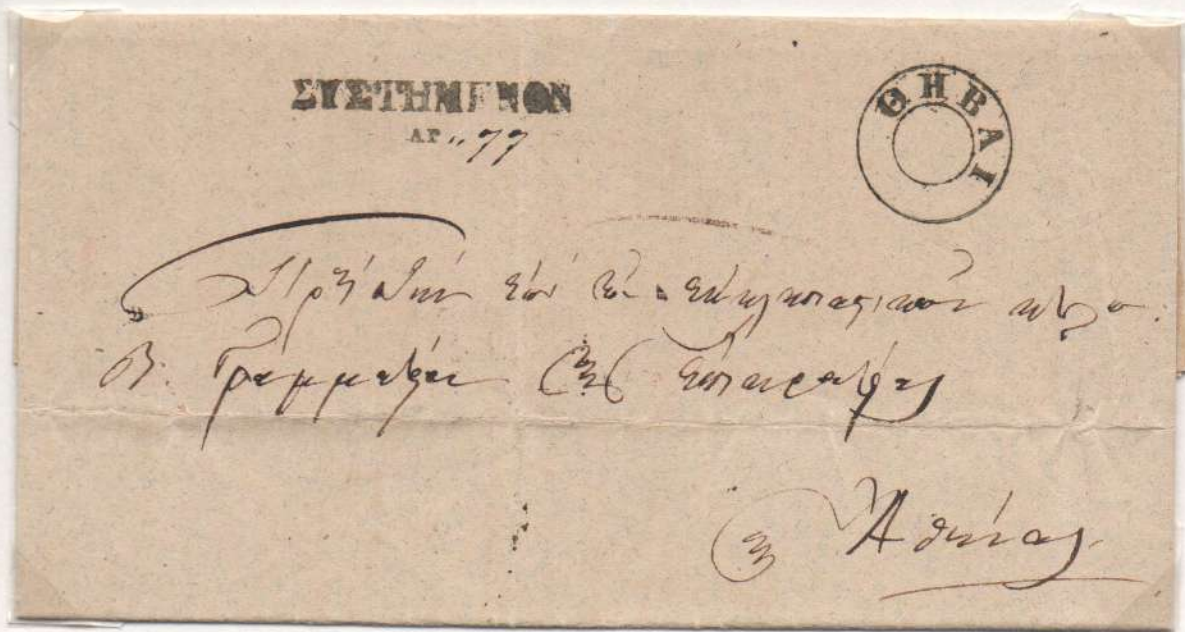 ΣΥΣΤΗΜΕΝΟΝ
ΘΗΒΑΙ
ΑΡ. 77
Πρὸς τὴν ἐπὶ τῶν ἐκκλησιαστικῶν κτλ.
Β. Γραμματείαν τῆς Ἐπικρατείας
Ἀθήνας